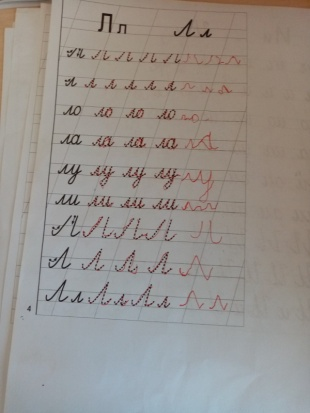 Лл Лл
Л Л Л Л Л Л Л Л
л л л л л л л л л
ло ло ло ло ло
ла ла ла ла ла
лу лу лу лу лу
ли ли ли ли ли
Л Л Л Л Л
Л Л Л Л Л
Лл Лл Лл Лл
4